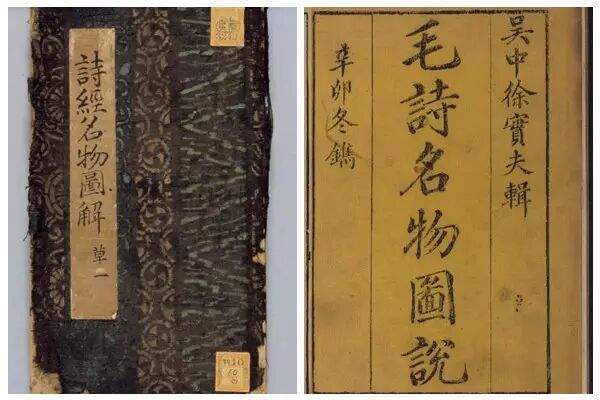 詩經名物圖解
草一
吳中徐實夫輯
毛詩名物圖說
辛卯冬鐫